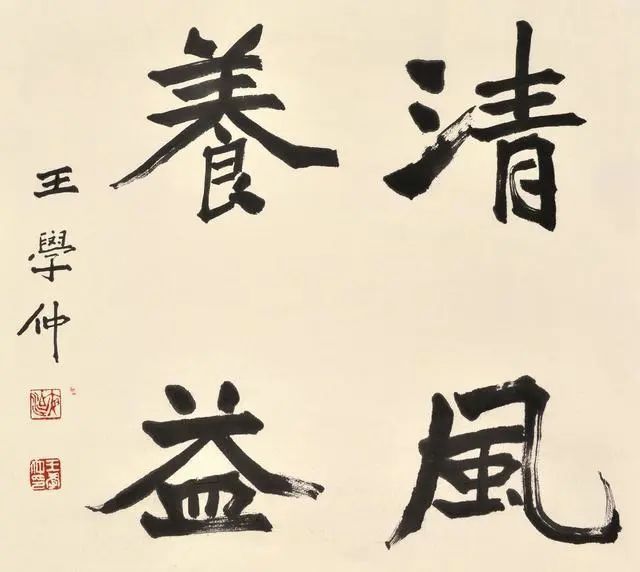 清風
養益
王學仲